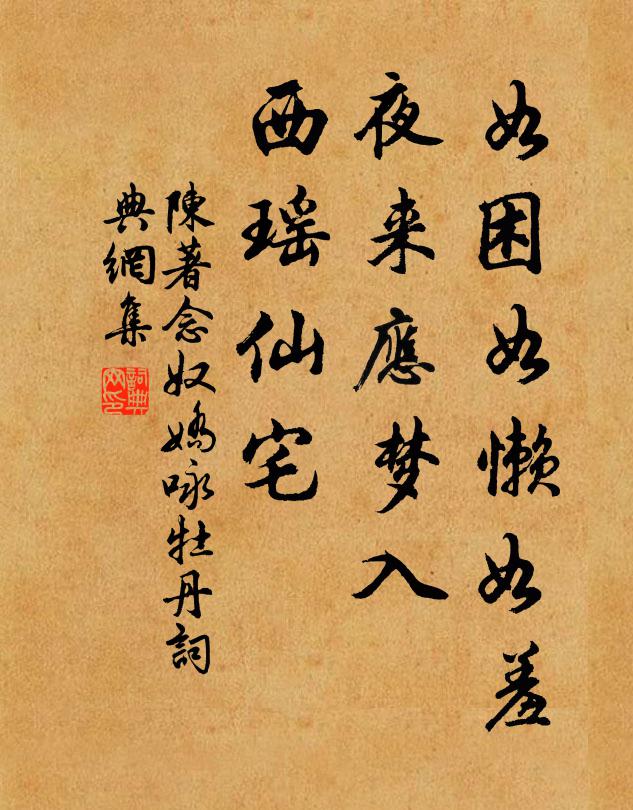 如困如懒如羞
夜来應梦入
西瑶仙宅
陳著念奴嬌咏牡丹詞
典網集
詞典
网印